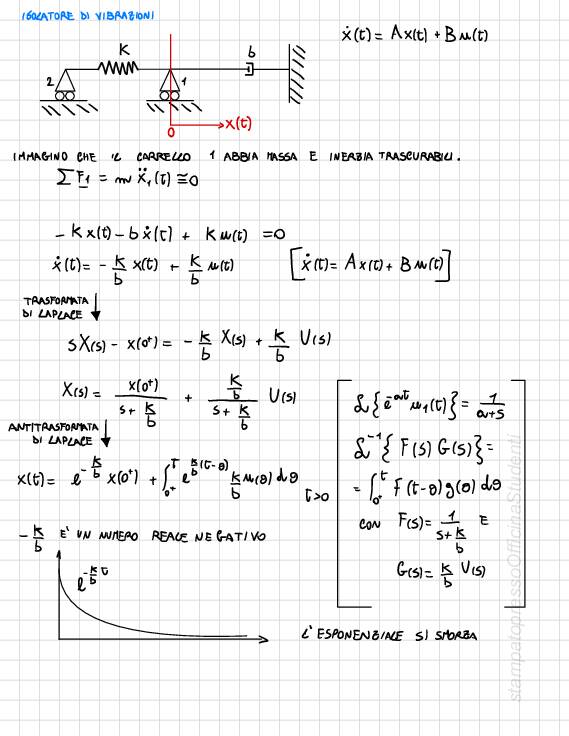 ISOLATORE DI VIBRAZIONI
ẋ(t) = Ax(t) + Bu(t)
K
b
2
1
0
x(t)
IMMAGINO CHE IL CARRELLO 1 ABBIA MASSA E INERZIA TRASCURABILI.
∑F1 = mẍ1(t) ≅ 0
-Kx(t) - bẋ(t) + Ku(t) = 0
ẋ(t) = -K/b x(t) + K/b u(t) [ẋ(t) = Ax(t) + Bu(t)]
TRASFORMATA
DI LAPLACE
sX(s) - x(0⁺) = -K/b X(s) + K/b U(s)
X(s) = x(0⁺)/(s + K/b) + (K/b)/(s + K/b) U(s)
ANTITRASFORMATA
DI LAPLACE
x(t) = e^(-K/b) x(0⁺) + ∫_{0⁺}^{t} e^(K/b (t-θ)) K/b u(θ) dθ t>0
ℒ{e^(-at) u1(t)} = 1/(a+s)
ℒ⁻¹{F(s) G(s)} =
= ∫_{0⁺}^{t} F(t-θ) g(θ) dθ
CON F(s) = 1/(s + K/b) E
G(s) = K/b U(s)
-K/b E' UN NUMERO REALE NEGATIVO
e^(-K/b t)
L'ESPONENZIALE SI SMORZA
stampatopressoOfficinaStudenti